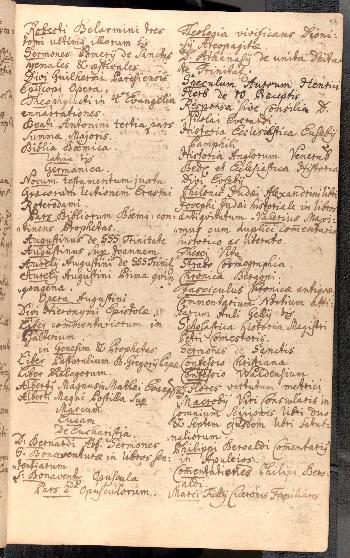 Roberti Belarmini tres
tomi ultimi librorum
Sermones Pomerÿ de Sanctis
hyemales & æstivales
Divi Guilhermi Parisiensis
Episcopi Opera
Theophylacti in 4r Evangelia
ennarrationes.
Beati Antonini tertia pars
Summa Majoris.
Biblia Boemica
Latina
Germanica.
Novum testamentum juxta
Græcorum lectionem Erasmi
Roterdami
Pars Bibliorum Boemi: con:
tinens Prophetas.
Augustinus de SSS Trinitate
Augustinus sup Joannem
Aurely Augustini de SSS Trinit
Aurely Augustini Prima quin:
quagena.
Opera Augustini
Divi Hieronymi Epistolæ
Liber commentariorum in
Psalterium.
in Genesim & Prophetas
Liber Pastoralium B. Gregorÿ Papæ
Liber Dialogorum.
Alberti Magnus in Mathæi Evang
Alberti Magni Postilla sup
Marcum
Lucam
De Eucharistia
D. Bernardi Abb. Sermones
S. Bonaventura in libros Sen:
tentiarum
S. Bonavent: Opuscula
Pars 2da Opusculorum.
Theologia vivificans Dioni:
sÿ Areopagitæ
D. Athanasÿ de unita Deita:
te Trinitat.
Speculum Aureum Henrici
Herb de 10 Præceptis.
Responsa sive consilia D.
Nicolai Everardi.
Historia Ecclesiastica Eusebÿ
Pamphili
Historia Anglorum Venerab
Bedæ et Ecclesiastica Historia
Eusebÿ.
Philonis Judæi Alexandrini libri
Josephi Judæi historiale in libros
antiquitatum. Valerius Maxi:
mus cum duplici comentario
historico ac literato.
Thesei Vita
Strabo cosmographica
Chronica Bergomi.
Fasciculus Chronica antiqua
Commentarium Noctium Atti:
carum Auli Gellÿ
Scholastica historia Magistri
Petri Comestoris.
Sermones de Sanctis
Confessio Cristiana
Confessio Waldensium
Flores virtutum metrici
Macrobÿ Viri Consularis in
Somnium Scipionis libri duo
& Septem ejusdem libri Satur:
naliorum.
Philippi Beroaldi Comentarÿ
in Apuleios.
Comentationes Philipi Bero:
aldi.
Marci Tullÿ Ciceronis Familiares